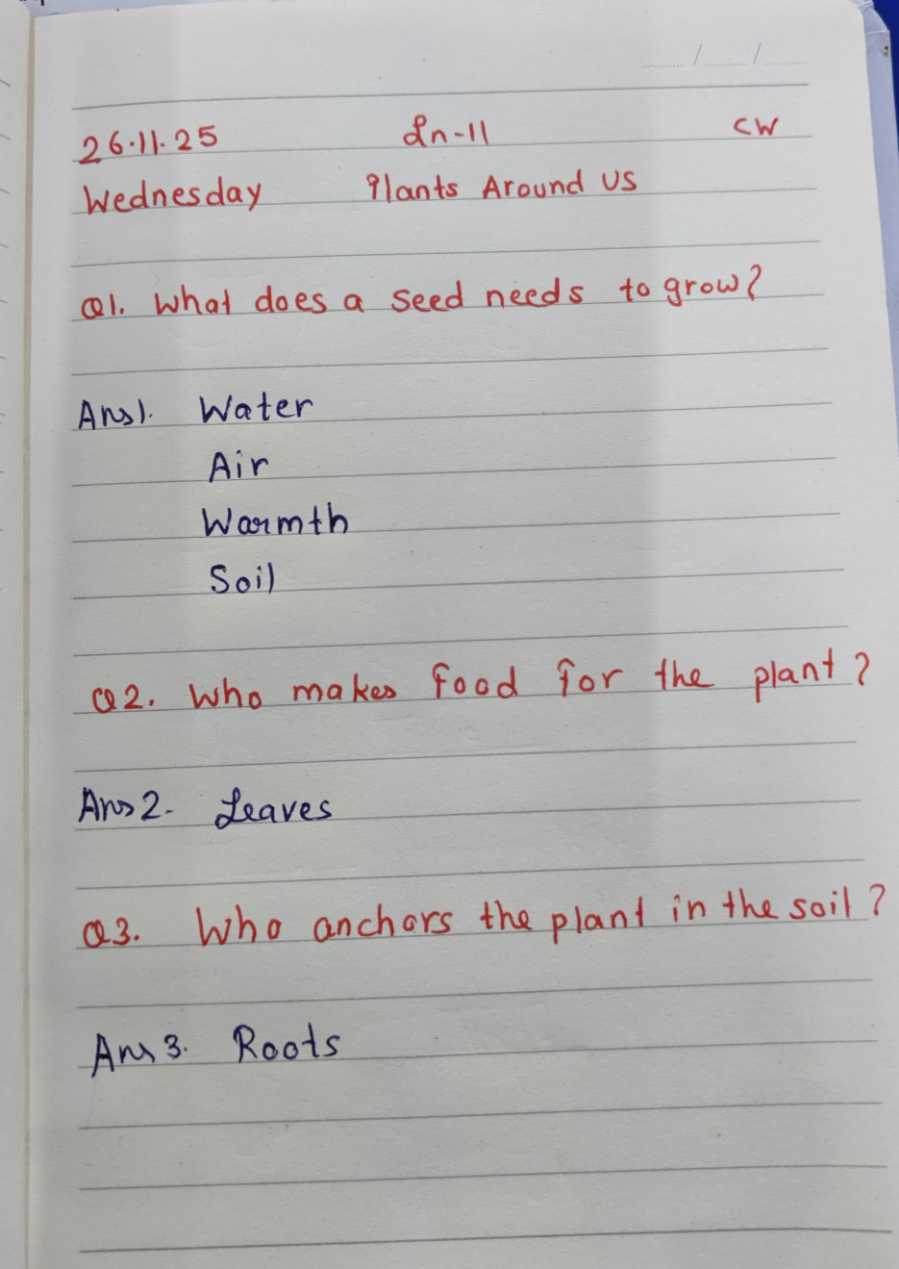 26.11.25 Ln-11 CW
Wednesday Plants Around Us
Q1. What does a seed needs to grow?
Ans1. Water
Air
Warmth
Soil
Q2. Who makes food for the plant?
Ans2. Leaves
Q3. Who anchors the plant in the soil?
Ans3. Roots